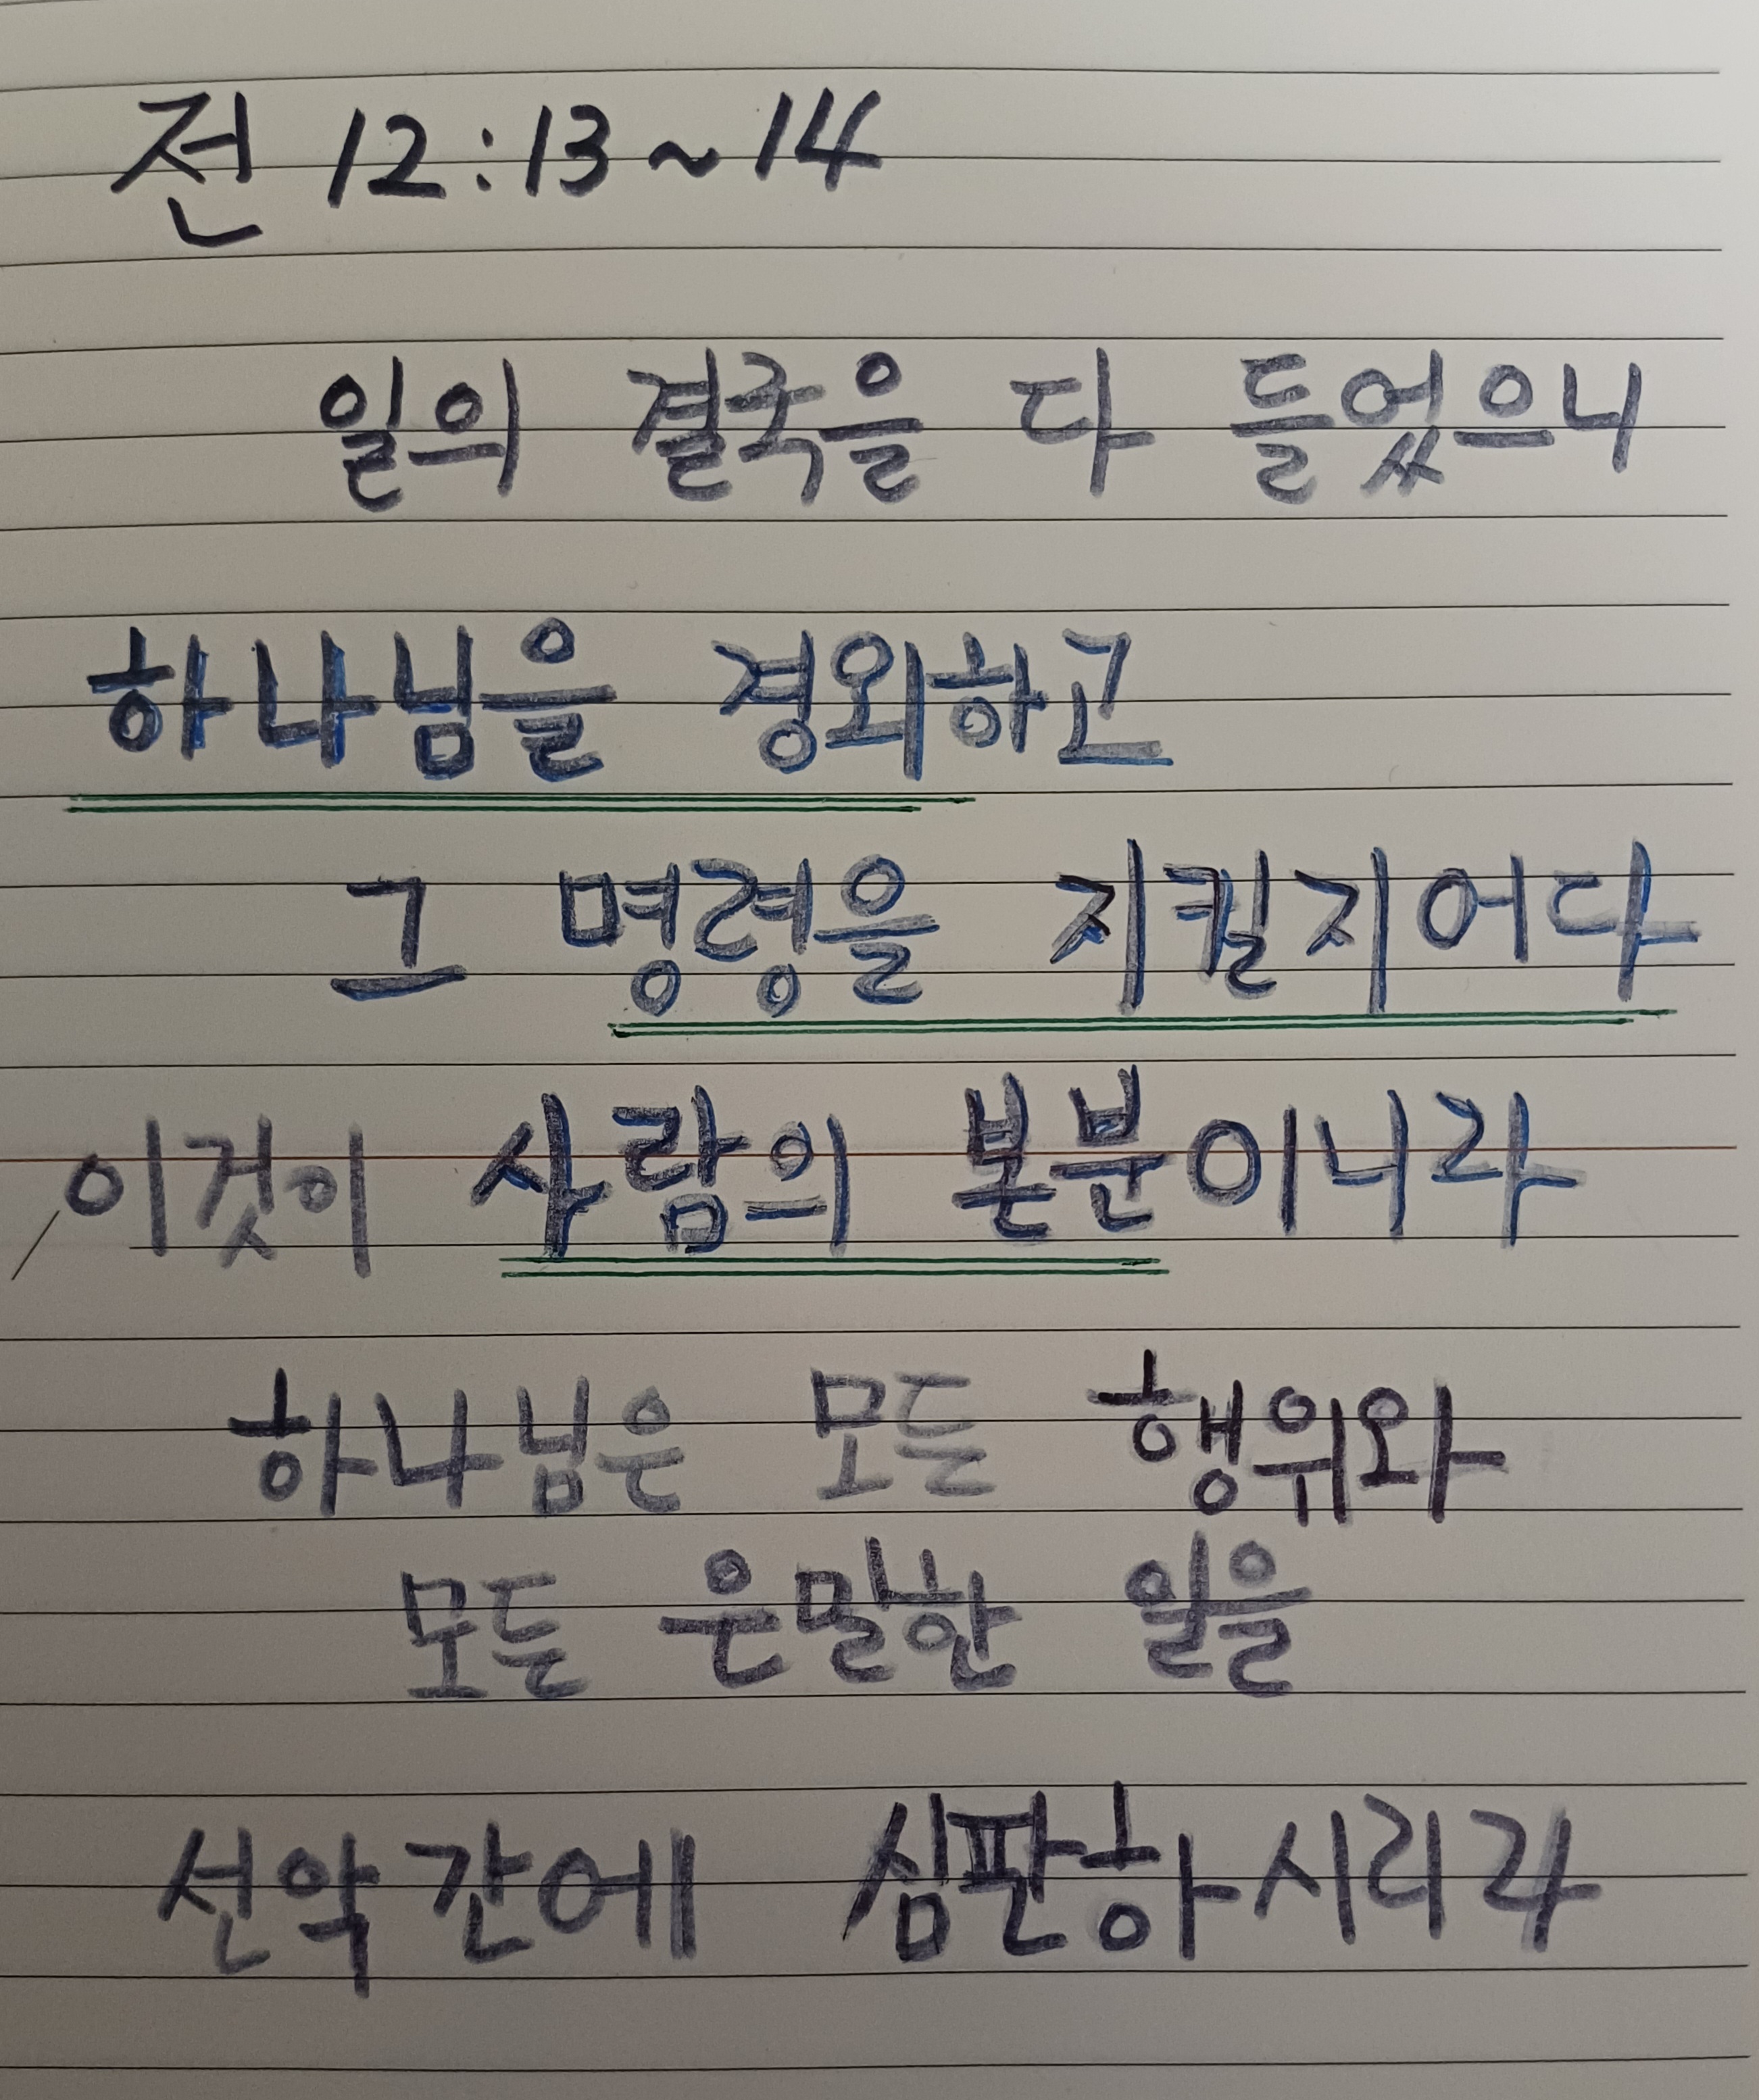 전 12:13~14
일의 결국을 다 들었으니
하나님을 경외하고
그 명령을 지킬지어다
이것이 사람의 본분이니라
하나님은 모든 행위와
모든 은밀한 일을
선악 간에 심판하시리라